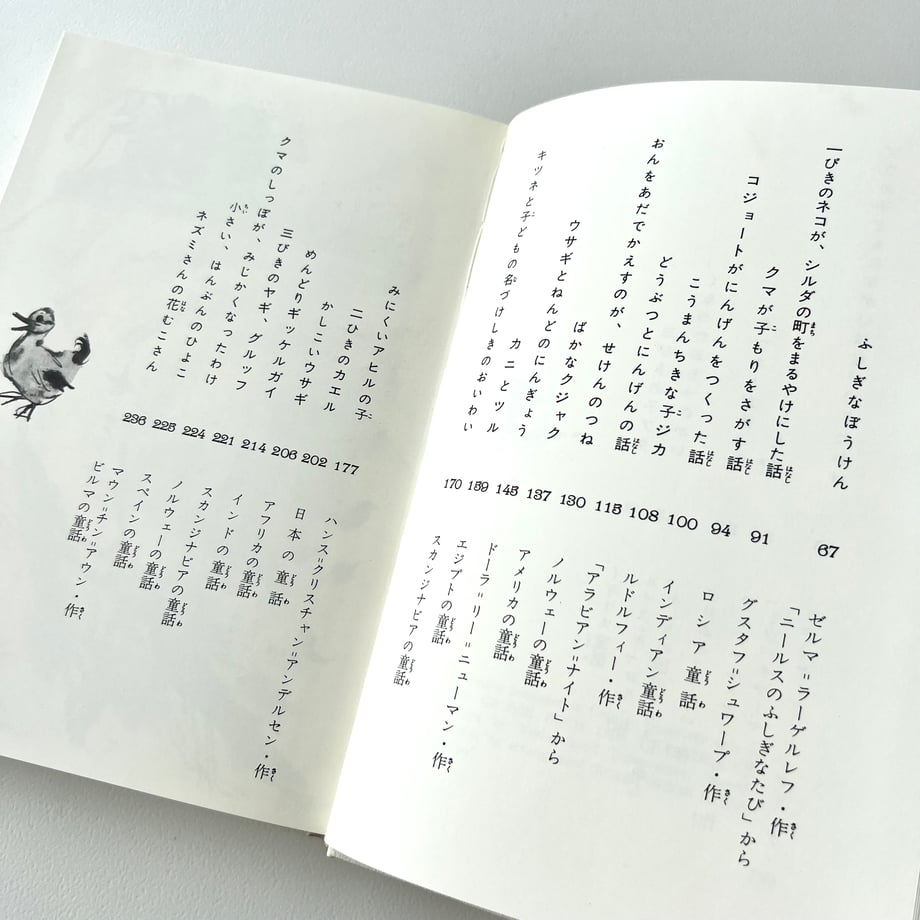 ふしぎなぼうけん 67 ゼルマ=ラーゲルレフ・作
「ニールスのふしぎなたび」から
一ぴきのネコが、シルダの町をまるやけにした話 91 グスタフ=シュワープ・作
クマが子もりをさがす話 94 ロシア童話
コジョートがにんげんをつくった話 100 インディアン童話
こうまんちきな子ジカ 108 ルドルフィー・作
どうぶつとにんげんの話 115 「アラビアン=ナイト」から
おんをあだでかえすのが、せけんのつね 130 ノルウェーの童話
ばかなクジャク 137 アメリカの童話
ウサギとねんどのにんぎょう 145 ドーラ=リー=ニューマン・作
カニとツル 159 エジプトの童話
キツネと子どもの名づけしきのおいわい 170 スカンジナビアの童話
みにくいアヒルの子 177 ハンス=クリスチャン=アンデルセン・作
二ひきのカエル 202 日本の童話
かしこいウサギ 206 アフリカの童話
めんどりギッケルガイ 214 インドの童話
三びきのヤギ、グルッフ 221 スカンジナビアの童話
クマのしっぽが、みじかくなったわけ 224 ノルウェーの童話
小さい、はんぶんのひよこ 225 スペインの童話
ネズミさんの花むこさん 236 マウン=チン=アウン・作
ビルマの童話